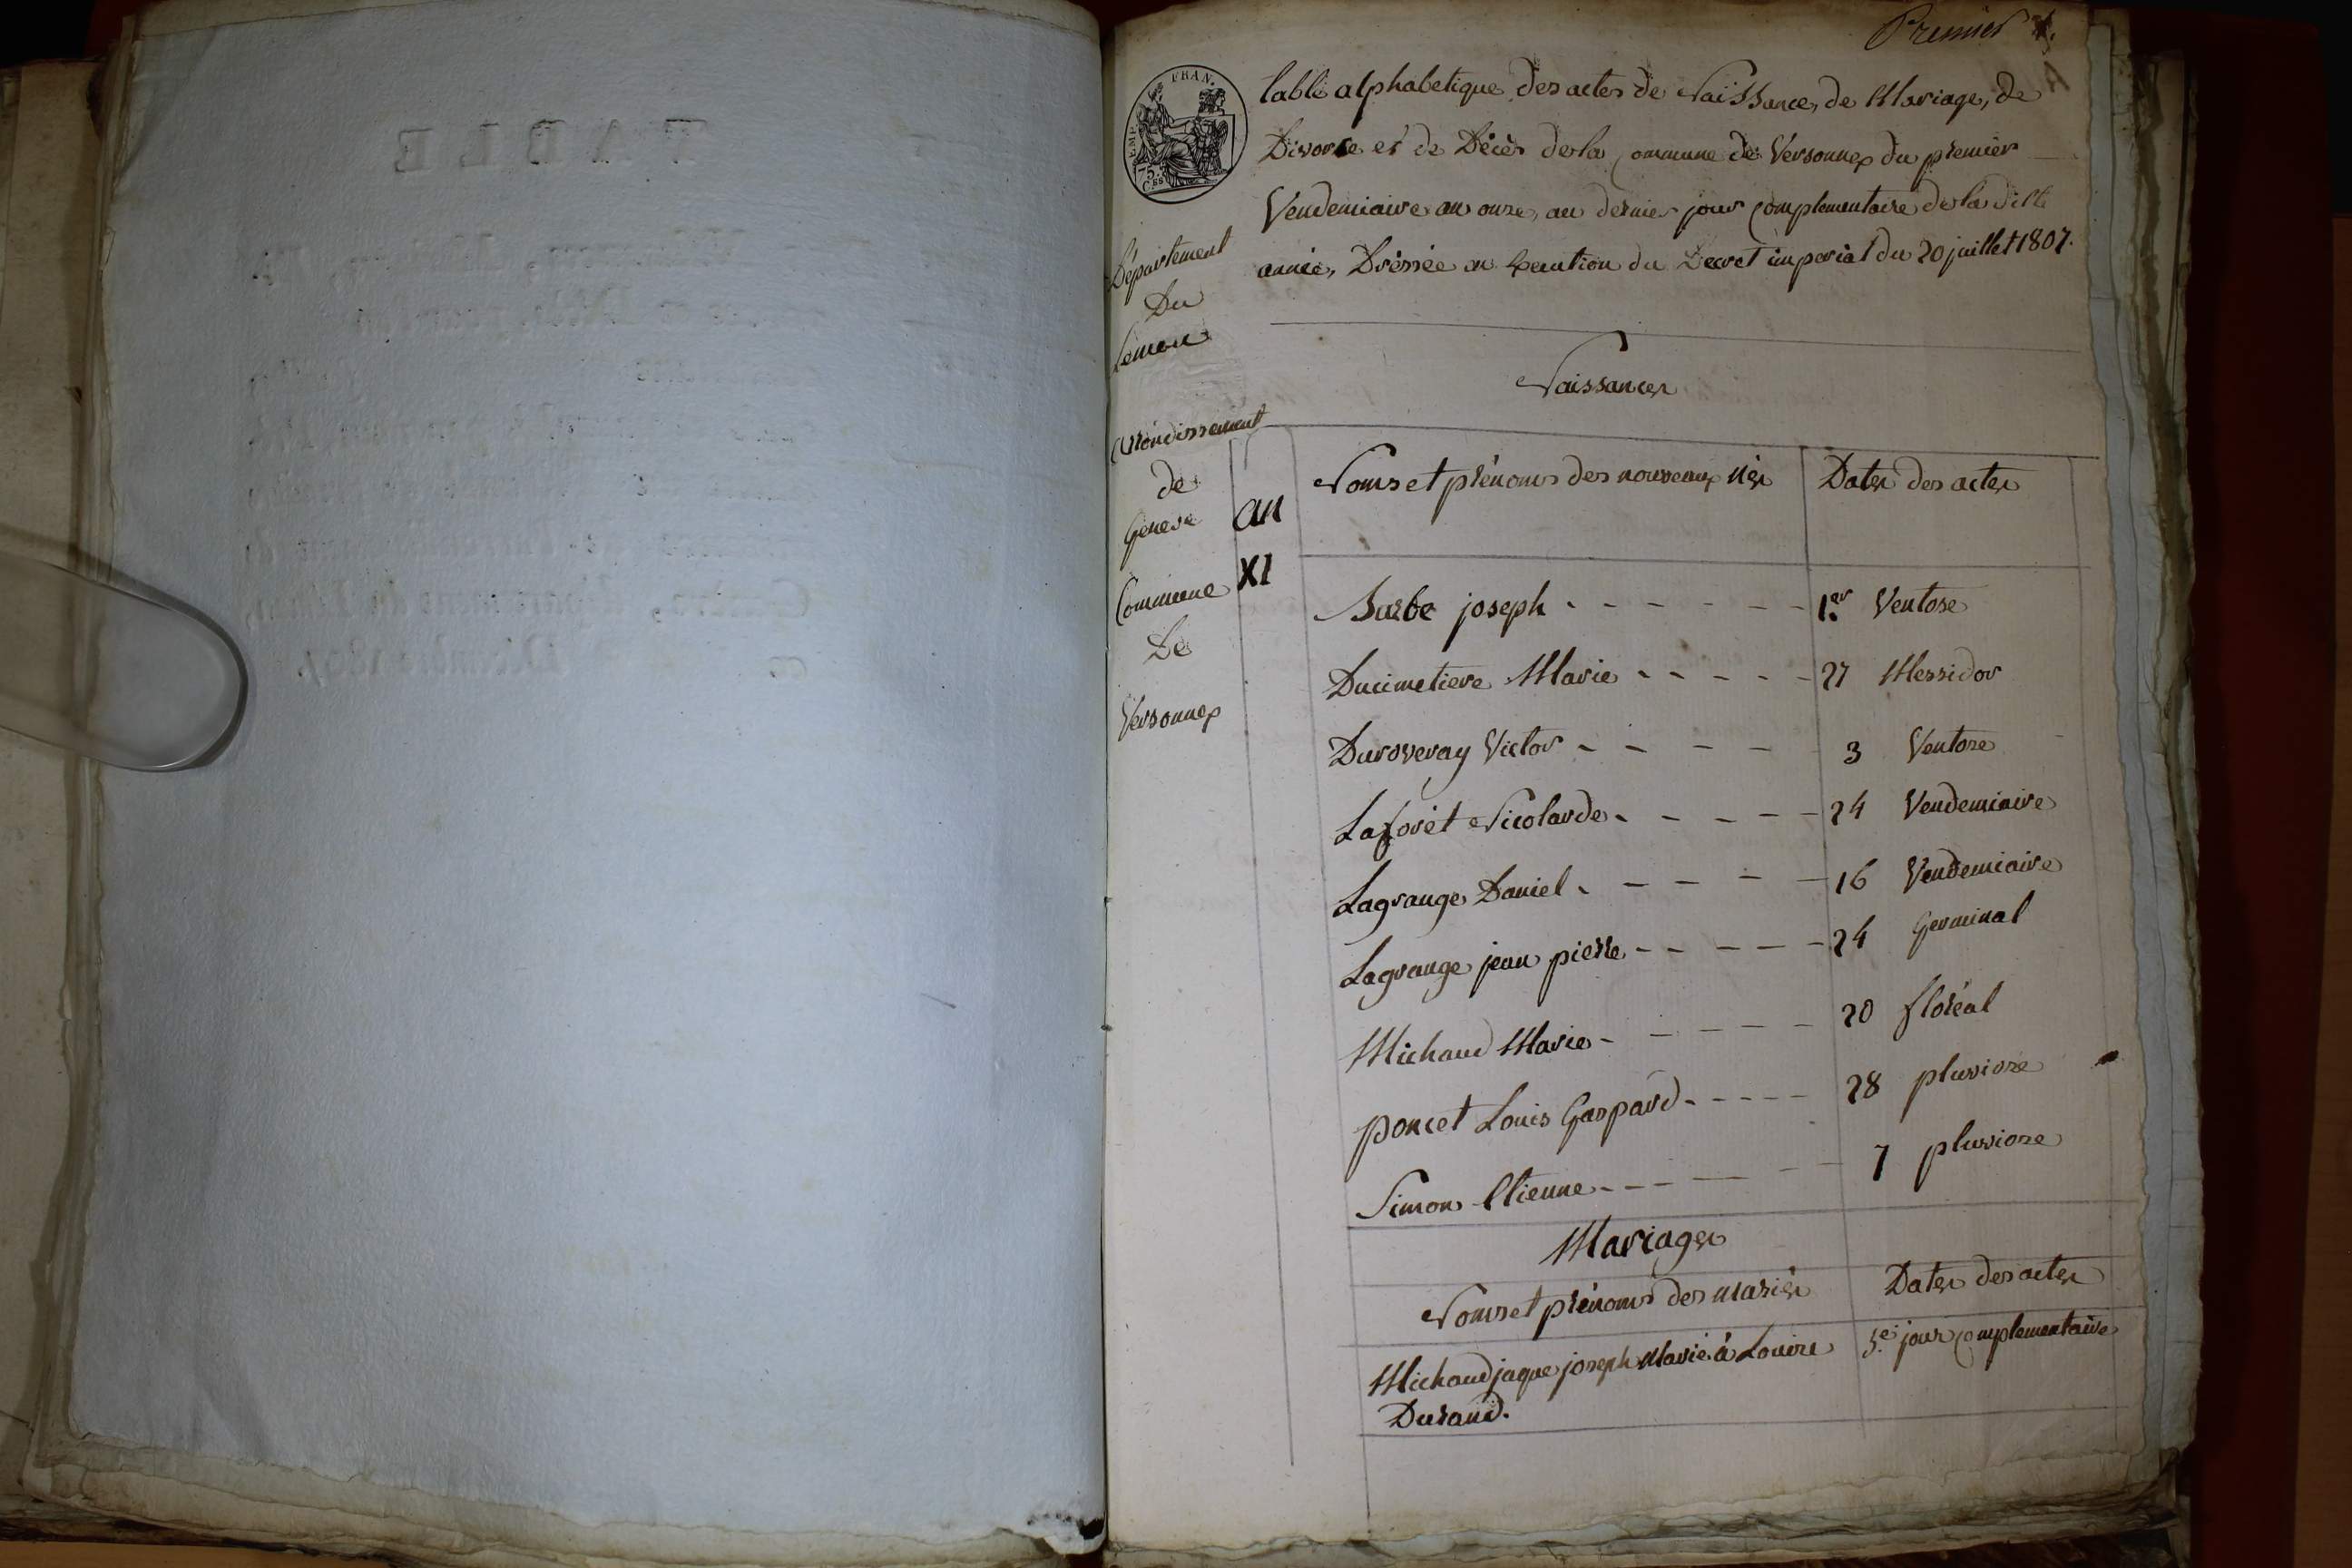 TABLE
Décembre 1807.
Premier
EMP. FRAN.
75.
C.es
table alphabetique des actes de Naissance, de Mariage, de
Divorce et de Décès de la Commune de Versonnex du premier
Vendemiaire an onze, au dernier jour Complementaire de la dite
année, Dréssée en Execution du Decret imperial du 20 juillet 1807.
Département
Du
Léman
Arrondissement
de
Geneve
Commune
De
Versonnex
Naissances
an
XI
Noms et prénoms des nouveaux nés
Dates des actes
Barbe joseph - - - - - - 1.er Ventose
Ducimetiere Marie - - - - - 27 Messidor
Duroveray Victor - - - - 3 Ventose
Laforêt Nicolarde - - - - - 24 Vendemiaire
Lagrange Daniel - - - - - 16 Vendemiaire
Lagrange jean pierre - - - - - 24 Germinal
Michaud Marie - - - - - 20 floréal
poncet Louis Gaspard - - - - - 28 pluviose
Simon Etienne - - - - - - 7 pluviose
Mariages
Noms et prénoms des mariés
Dates des actes
Michaud jaque joseph Marié à Louise 5.e jour Complementaire
Durand.